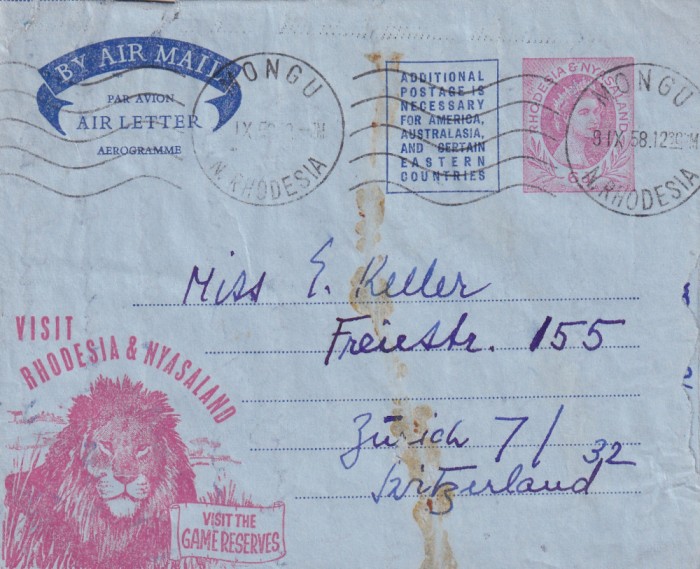 BY AIR MAIL
PAR AVION
AIR LETTER
AEROGRAMME
MONGU
N. RHODESIA
ADDITIONAL
POSTAGE IS
NECESSARY
FOR AMERICA,
AUSTRALASIA,
AND CERTAIN
EASTERN
COUNTRIES
RHODESIA & NYASALAND
6d
MONGU
8 IX 58.12 30 PM
N. RHODESIA
Miss E. Keller
Freiestr. 155
Zürich 7/32
Switzerland
VISIT
RHODESIA & NYASALAND
VISIT THE
GAME RESERVES